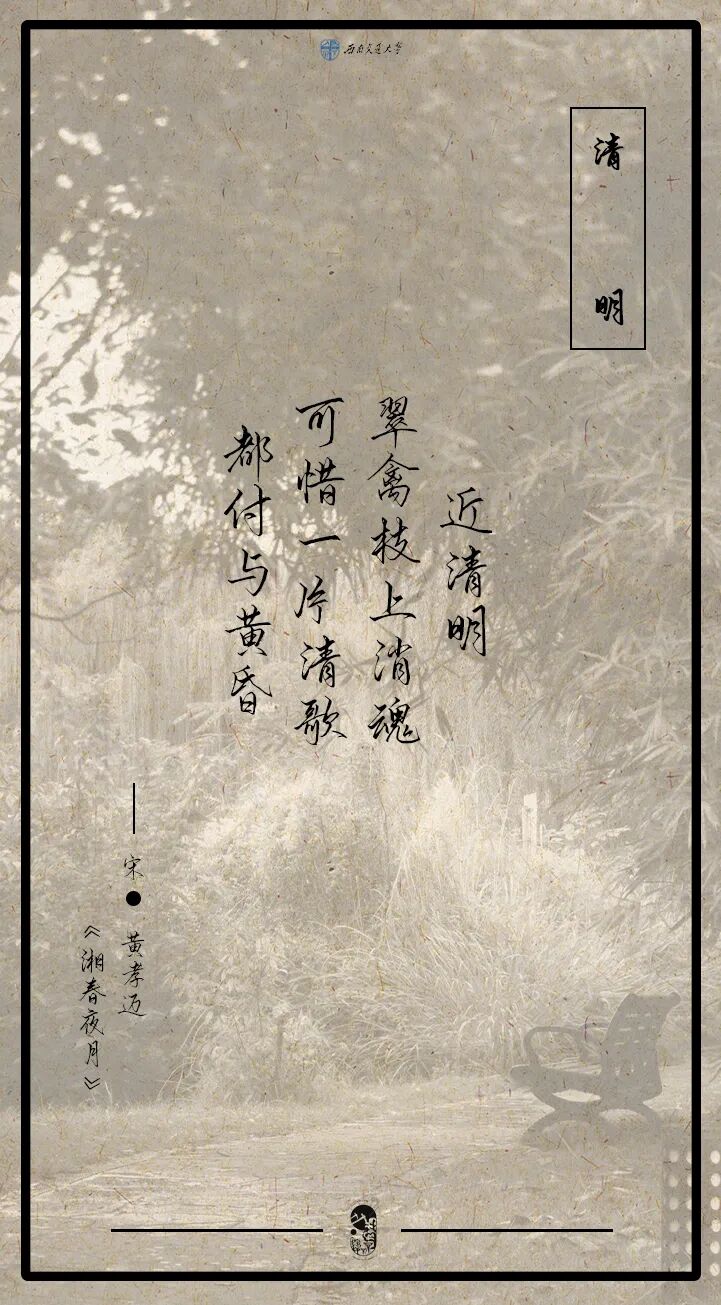 西南交通大学
清明
近清明
翠禽枝上消魂
可惜一片清歌
都付与黄昏
宋●黄孝迈
《湘春夜月》